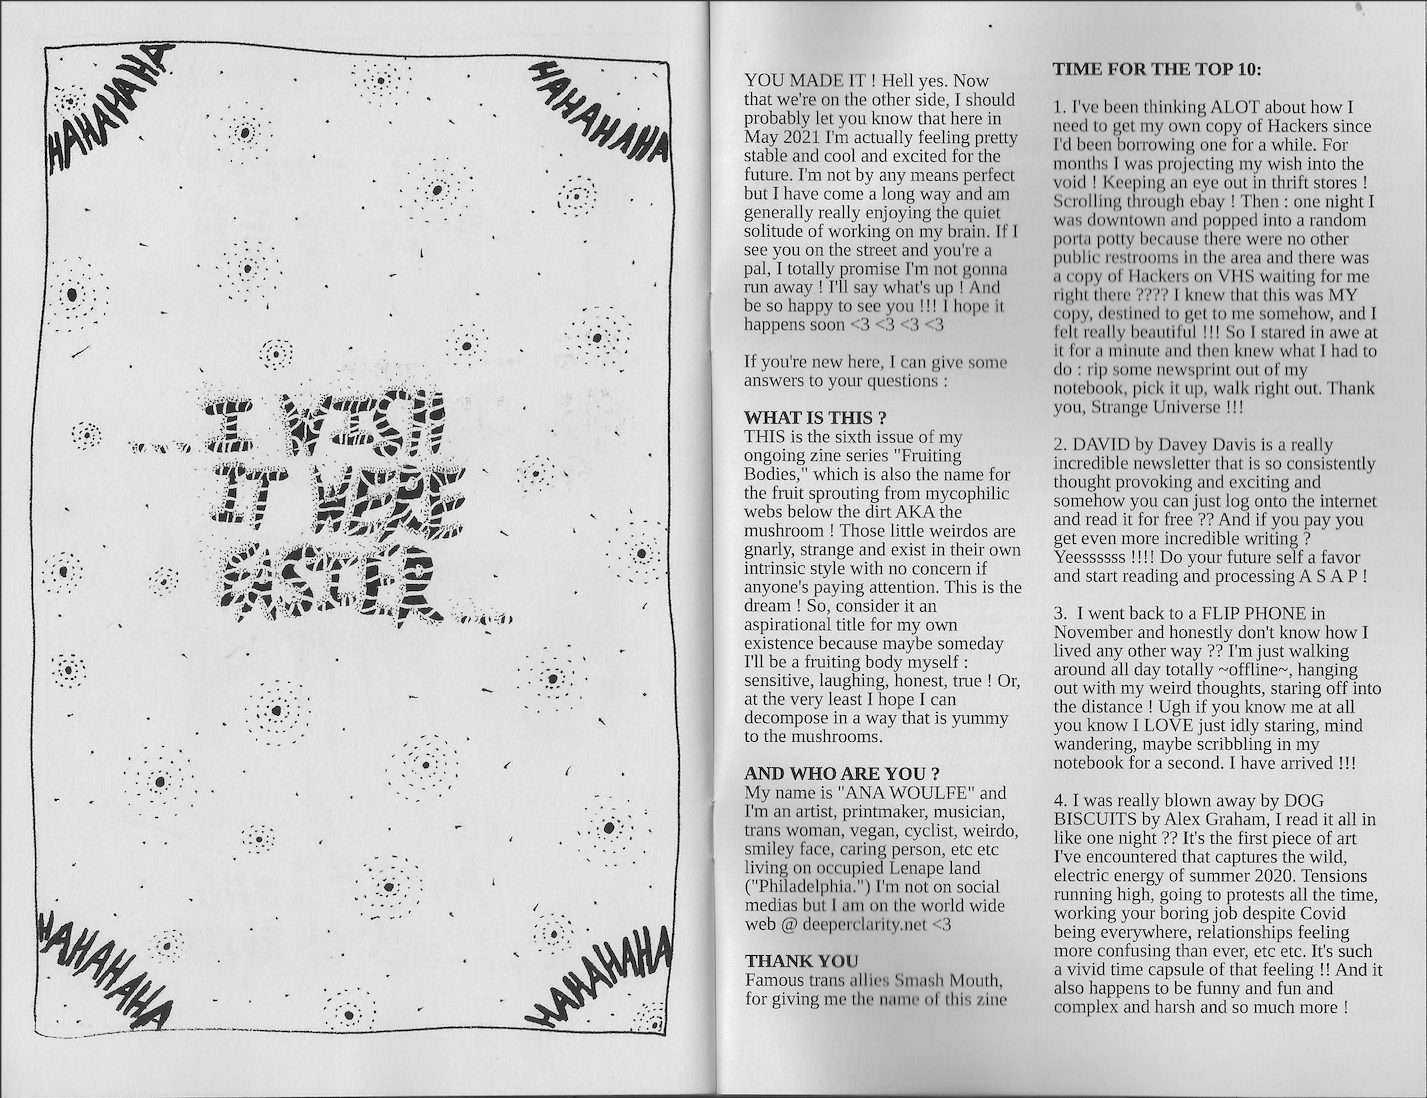 HAHAHAHA
HAHAHAHA
...I WISH
IT WERE
EASIER...
HAHAHAHA
HAHAHAHA
YOU MADE IT ! Hell yes. Now
that we're on the other side, I should
probably let you know that here in
May 2021 I'm actually feeling pretty
stable and cool and excited for the
future. I'm not by any means perfect
but I have come a long way and am
generally really enjoying the quiet
solitude of working on my brain. If I
see you on the street and you're a
pal, I totally promise I'm not gonna
run away ! I'll say what's up ! And
be so happy to see you !!! I hope it
happens soon <3 <3 <3 <3
If you're new here, I can give some
answers to your questions :
WHAT IS THIS ?
THIS is the sixth issue of my
ongoing zine series "Fruiting
Bodies," which is also the name for
the fruit sprouting from mycophilic
webs below the dirt AKA the
mushroom ! Those little weirdos are
gnarly, strange and exist in their own
intrinsic style with no concern if
anyone's paying attention. This is the
dream ! So, consider it an
aspirational title for my own
existence because maybe someday
I'll be a fruiting body myself :
sensitive, laughing, honest, true ! Or,
at the very least I hope I can
decompose in a way that is yummy
to the mushrooms.
AND WHO ARE YOU ?
My name is "ANA WOULFE" and
I'm an artist, printmaker, musician,
trans woman, vegan, cyclist, weirdo,
smiley face, caring person, etc etc
living on occupied Lenape land
("Philadelphia.") I'm not on social
medias but I am on the world wide
web @ deeperclarity.net <3
THANK YOU
Famous trans allies Smash Mouth,
for giving me the name of this zine
TIME FOR THE TOP 10:
1. I've been thinking ALOT about how I
need to get my own copy of Hackers since
I'd been borrowing one for a while. For
months I was projecting my wish into the
void ! Keeping an eye out in thrift stores !
Scrolling through ebay ! Then : one night I
was downtown and popped into a random
porta potty because there were no other
public restrooms in the area and there was
a copy of Hackers on VHS waiting for me
right there ???? I knew that this was MY
copy, destined to get to me somehow, and I
felt really beautiful !!! So I stared in awe at
it for a minute and then knew what I had to
do : rip some newsprint out of my
notebook, pick it up, walk right out. Thank
you, Strange Universe !!!
2. DAVID by Davey Davis is a really
incredible newsletter that is so consistently
thought provoking and exciting and
somehow you can just log onto the internet
and read it for free ?? And if you pay you
get even more incredible writing ?
Yeessssss !!!! Do your future self a favor
and start reading and processing A S A P !
3.  I went back to a FLIP PHONE in
November and honestly don't know how I
lived any other way ?? I'm just walking
around all day totally ~offline~, hanging
out with my weird thoughts, staring off into
the distance ! Ugh if you know me at all
you know I LOVE just idly staring, mind
wandering, maybe scribbling in my
notebook for a second. I have arrived !!!
4. I was really blown away by DOG
BISCUITS by Alex Graham, I read it all in
like one night ?? It's the first piece of art
I've encountered that captures the wild,
electric energy of summer 2020. Tensions
running high, going to protests all the time,
working your boring job despite Covid
being everywhere, relationships feeling
more confusing than ever, etc etc. It's such
a vivid time capsule of that feeling !! And it
also happens to be funny and fun and
complex and harsh and so much more !